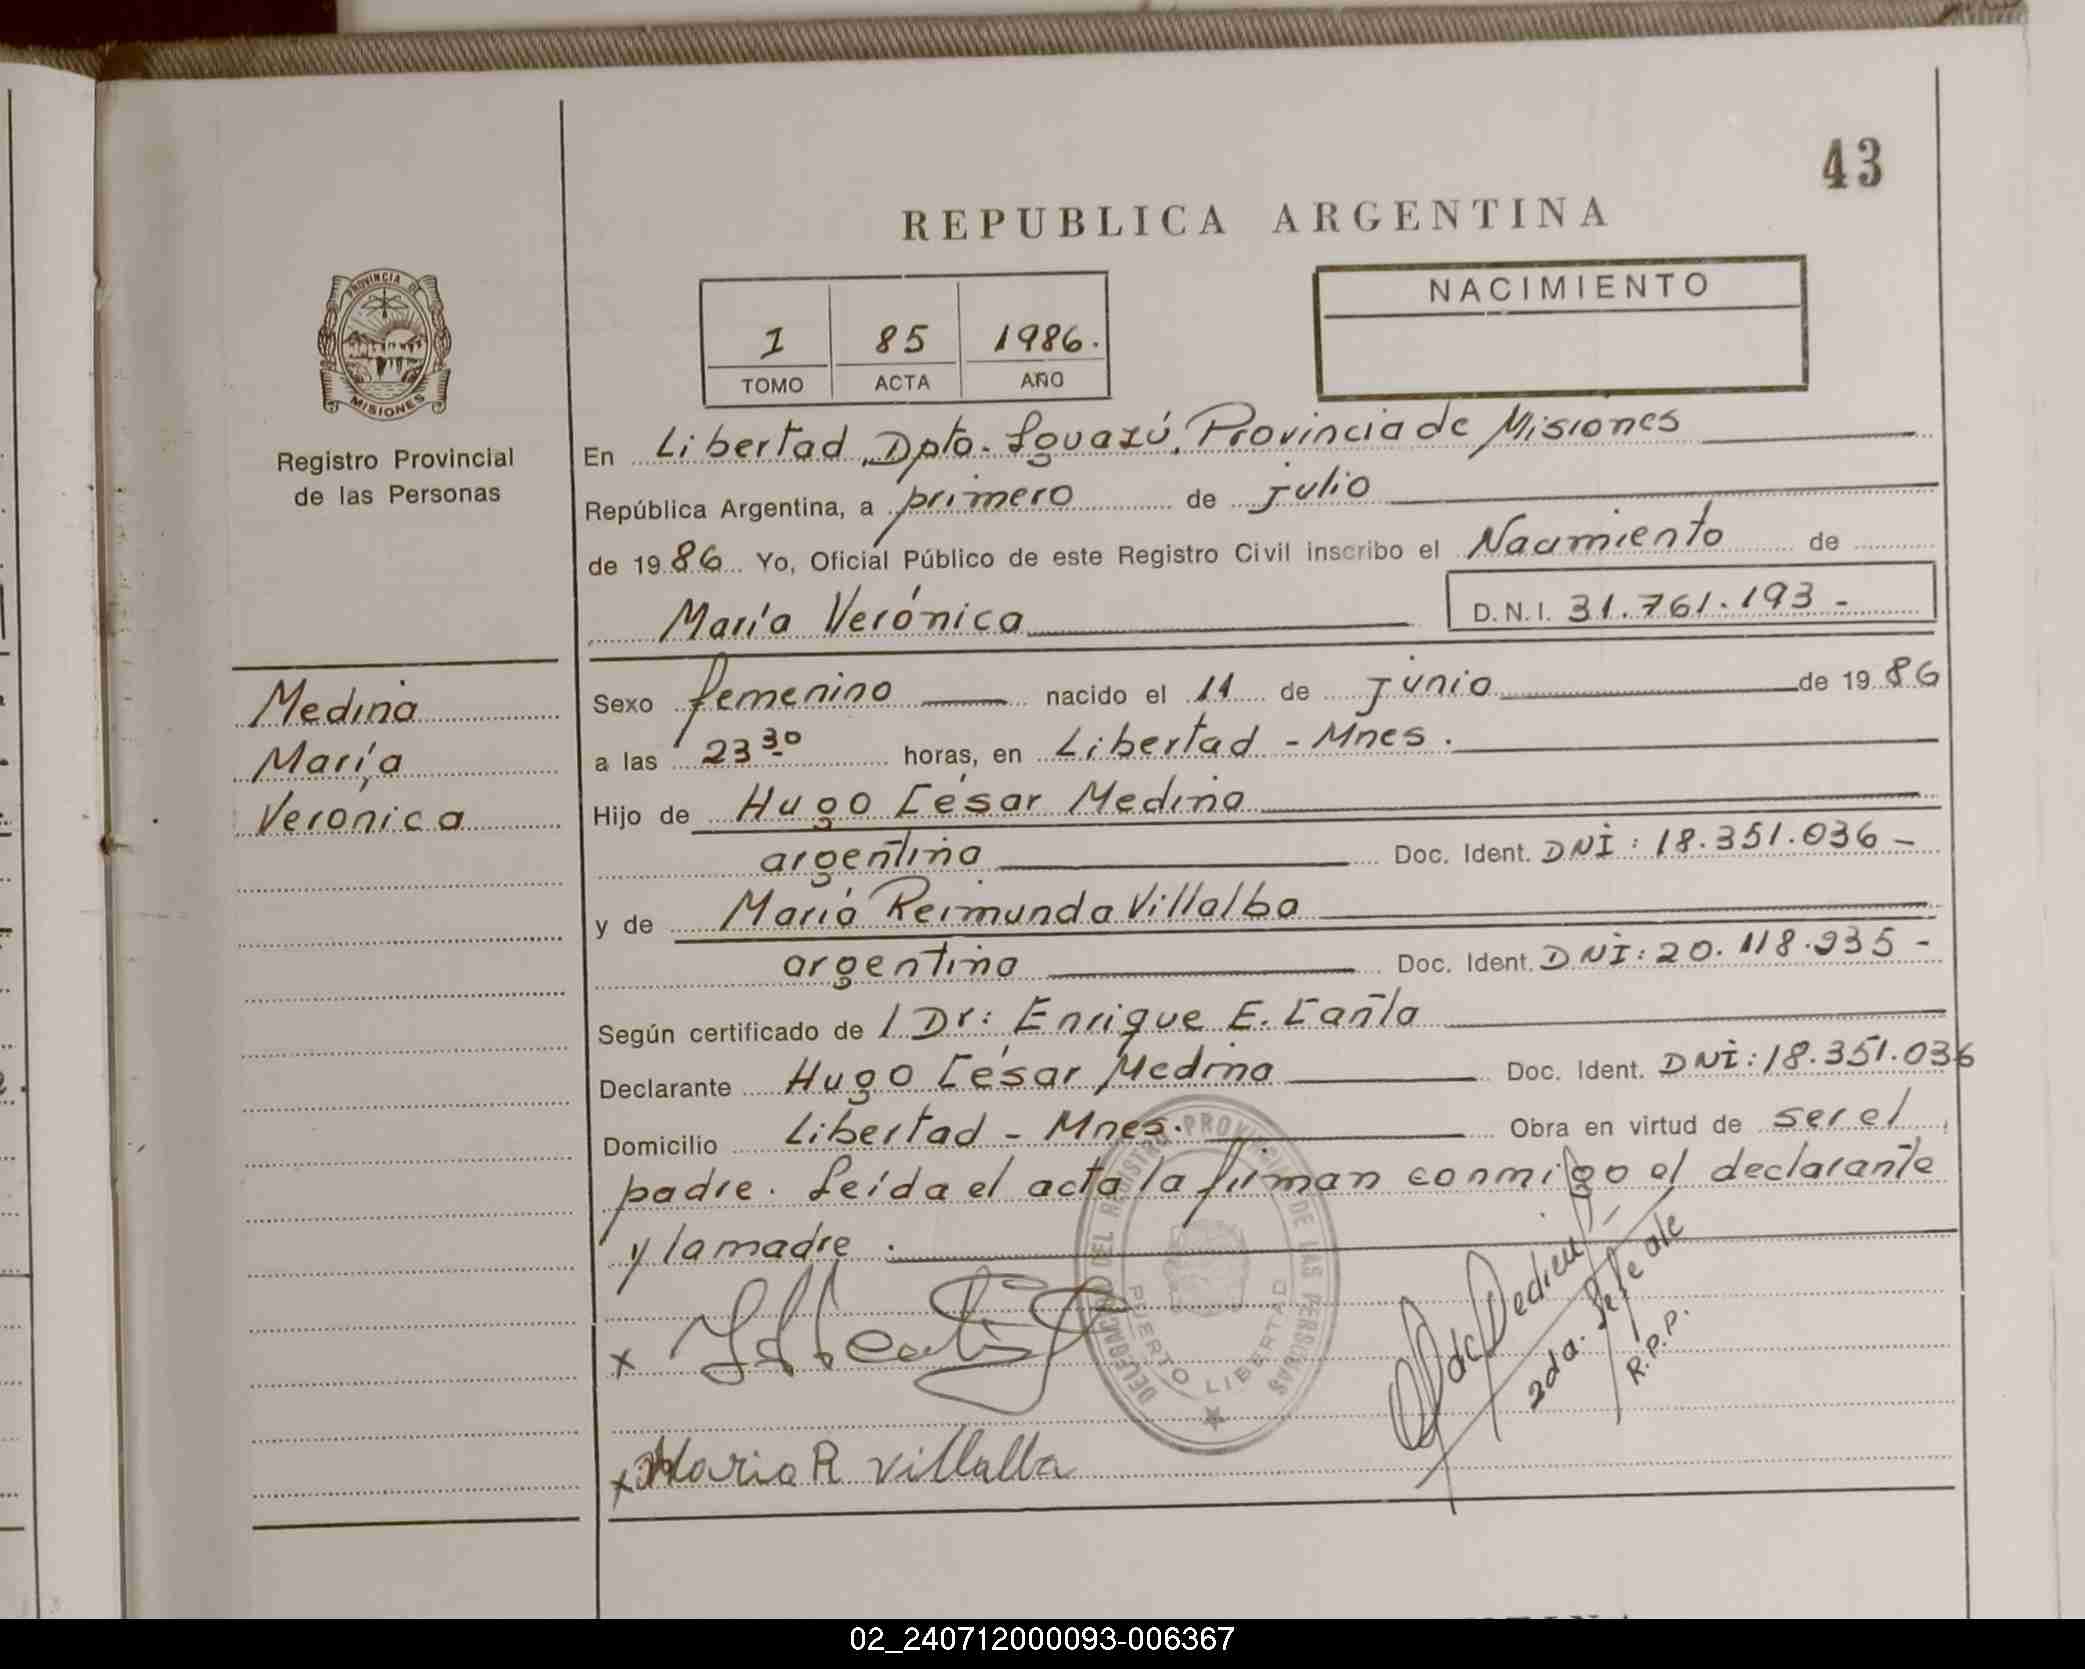 43
REPUBLICA ARGENTINA
PROVINCIA DE
MISIONES
Registro Provincial
de las Personas
I 85 1986.
TOMO ACTA AÑO
NACIMIENTO
En Libertad, Dpto. Iguazú, Provincia de Misiones
República Argentina, a primero de julio
de 1986 Yo, Oficial Público de este Registro Civil inscribo el Nacimiento de
María Verónica D.N.I. 31.761.193 -
Medina
María
Veronica
Sexo femenino nacido el 11 de junio de 1986
a las 23 30 horas, en Libertad - Mnes.
Hijo de Hugo César Medina
argentina Doc. Ident. DNI: 18.351.036 -
y de María Reimunda Villalba
argentina Doc. Ident. DNI: 20.118.935 -
Según certificado de l Dr: Enrique E.
Declarante Hugo César Medina Doc. Ident. DNI: 18.351.036
Domicilio Libertad - Mnes. Obra en virtud de ser el
padre. Leída el acta la firman conmigo el declarante
y la madre.
DELEGACION DEL REGISTRO PROVINCIAL DE LAS PERSONAS
PUERTO LIBERTAD
x
2da.
R.P.P.
x Maria R Villalba
02_240712000093-006367